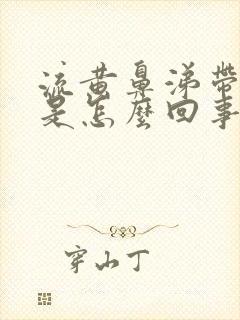 流黄鼻涕带
是怎麼回事
穿山丁